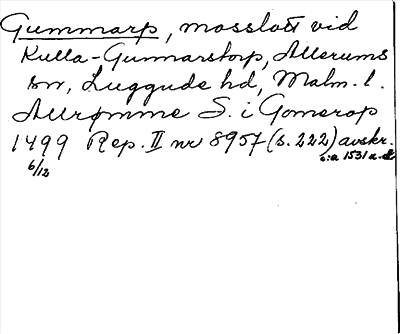 Gummarp, mosslott vid
Kulla-Gunnarstorp, Allerums
sn, Luggude hd, Malm. l.
Aurømme S. i Gomerop
1499 Rep. II nr 8957 (s. 222) avskr.
6/12 c:a 1531 a.